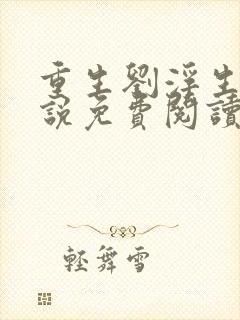 重生劉淫生
說免費閱讀
輕舞雪